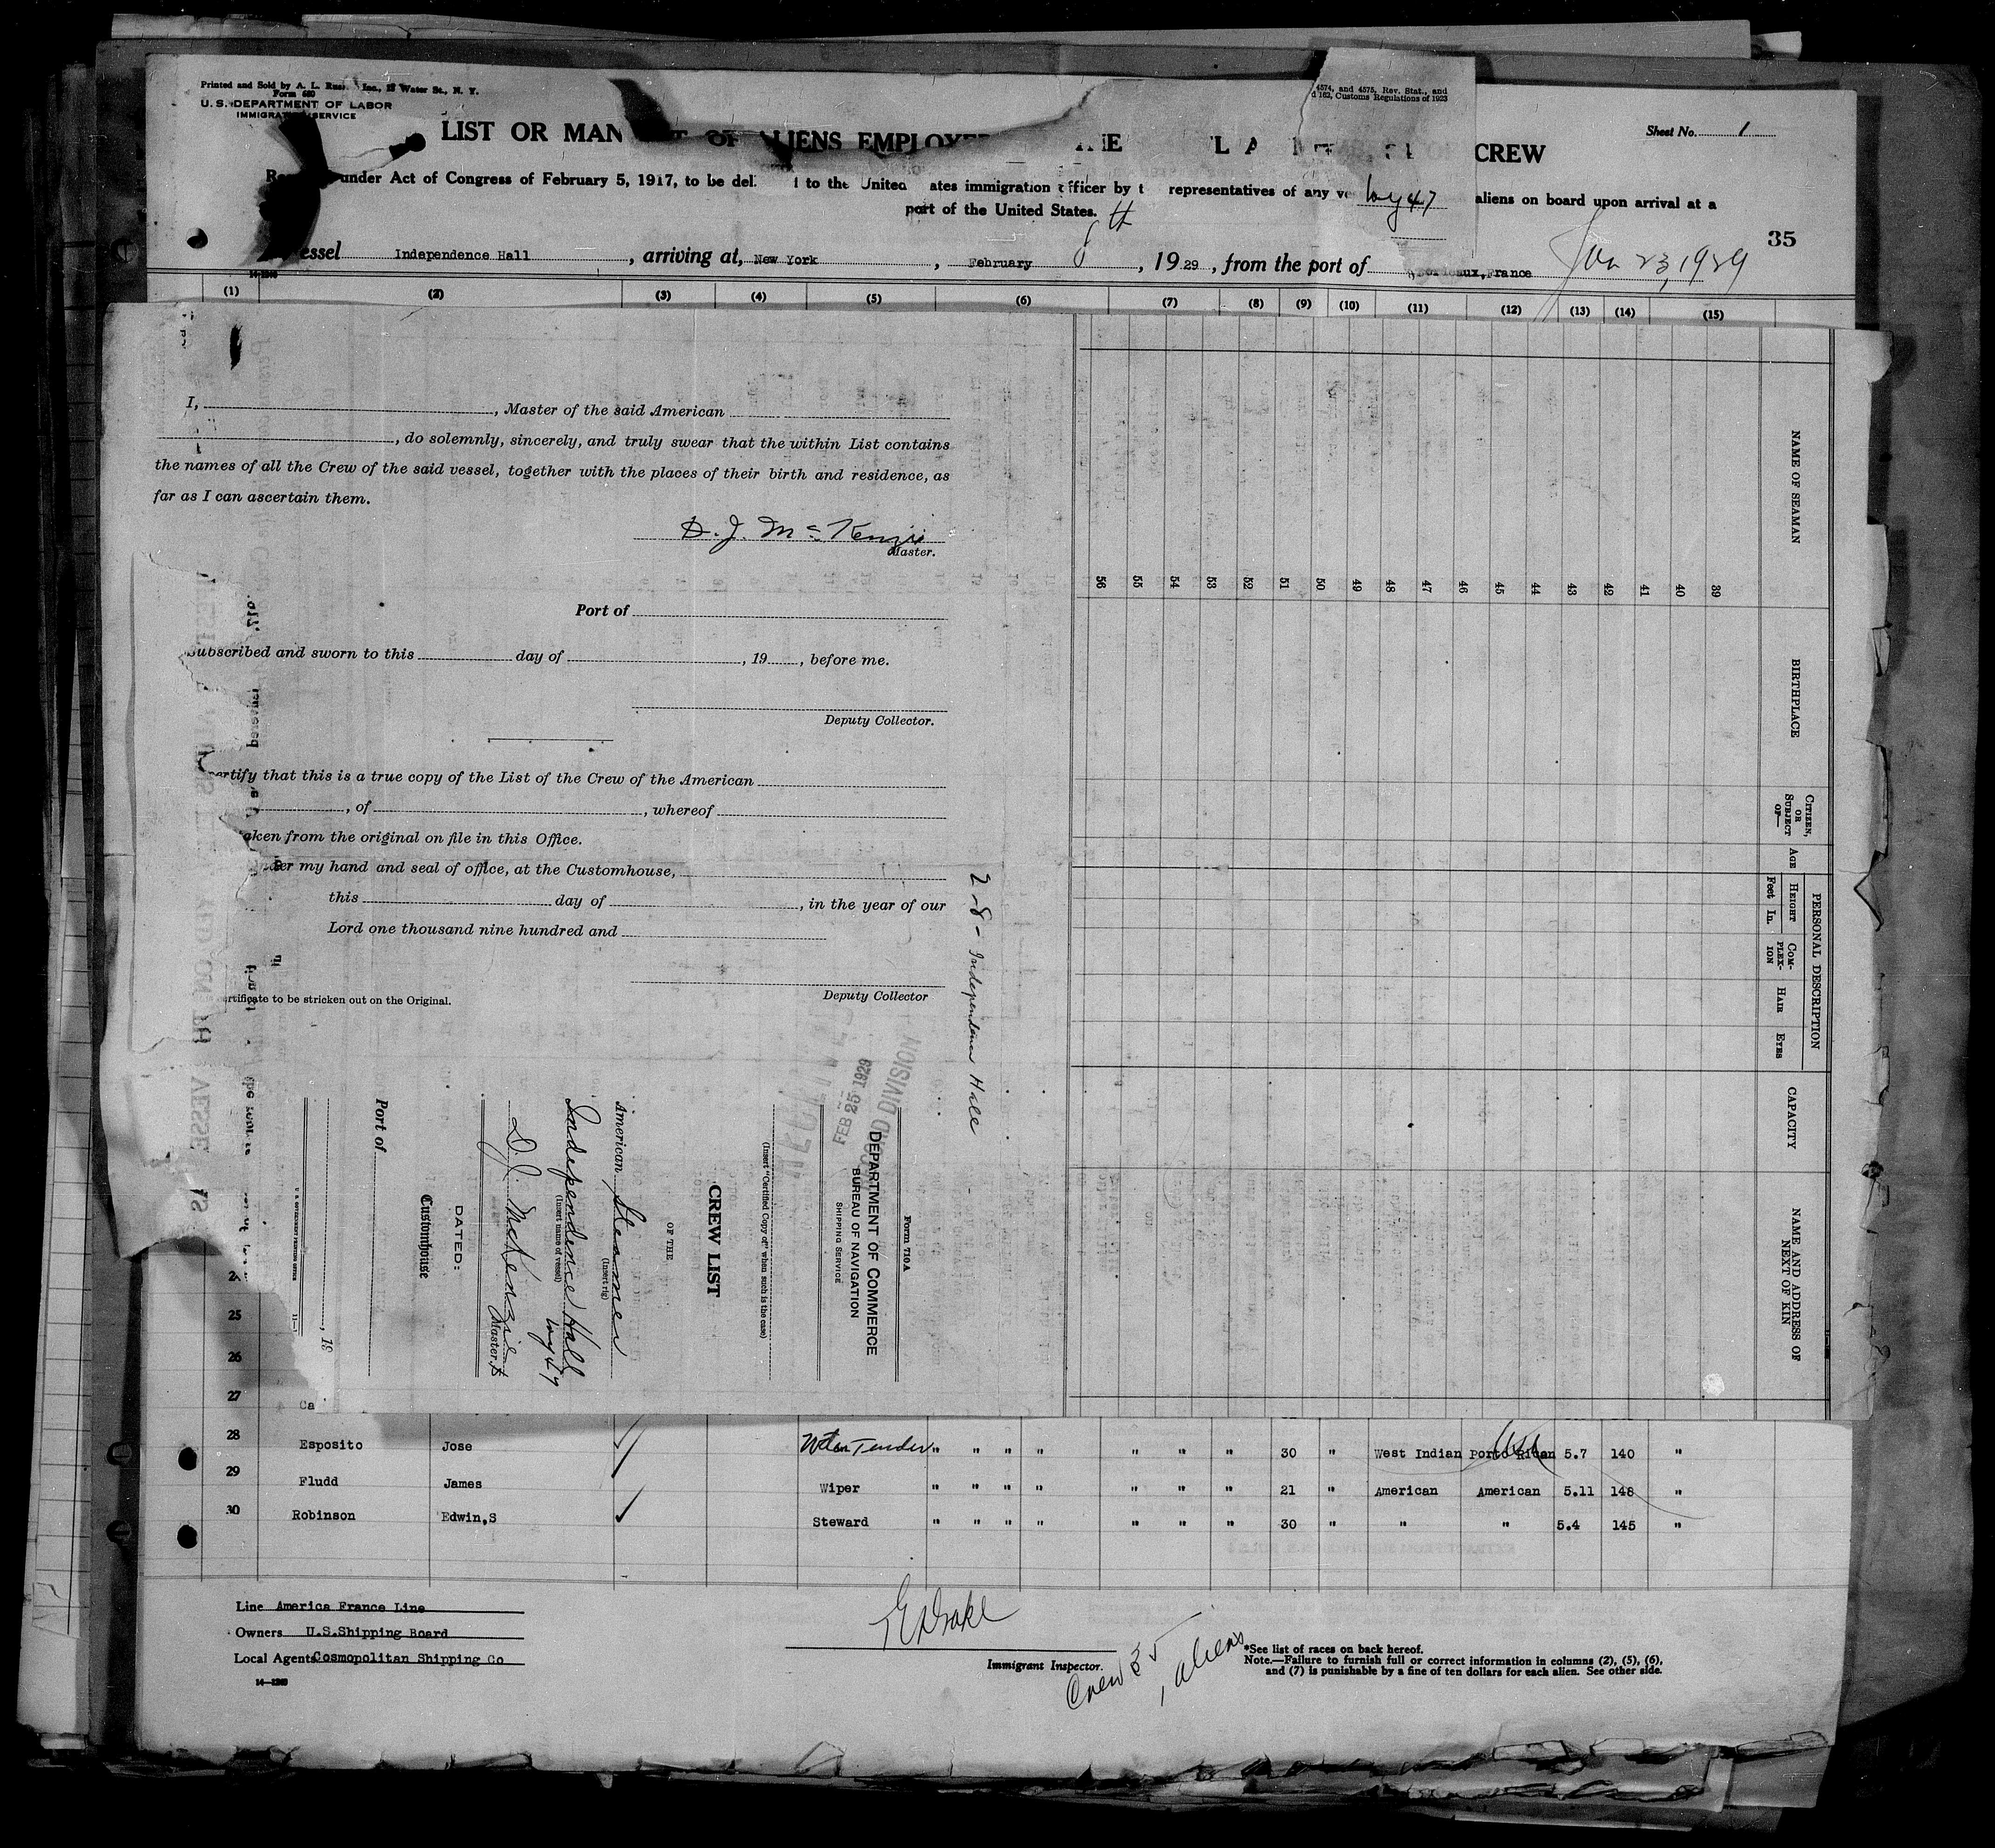 Printed and Sold by A. L. Inc., Water St., N. Y.
Form 680
U. S. DEPARTMENT OF LABOR
IMMIGRA SERVICE
4574, and 4575, Rev. Stat., and
162, Customs Regulations of 1923
LIST OR MAN OF ALIENS EMPLOYE THE CREW
Sheet No. 1
under Act of Congress of February 5, 1917, to be del to the United ates immigration officer by representatives of any aliens on board upon arrival at a
port of the United States.
47
35
essel Independence Hall, arriving at, New York, February 8th, 1929, from the port of Bordeaux, France Jan 23, 1929
(1) (2) (3) (4) (5) (6) (7) (8) (9) (10) (11) (12) (13) (14) (15)
I, , Master of the said American
, do solemnly, sincerely, and truly swear that the within List contains
the names of all the Crew of the said vessel, together with the places of their birth and residence, as
far as I can ascertain them.
D. J. McKenzie
Master.
Port of
Subscribed and sworn to this day of , 19 , before me.
Deputy Collector.
ertify that this is a true copy of the List of the Crew of the American
, of , whereof
taken from the original on file in this Office.
nder my hand and seal of office, at the Customhouse,
this day of , in the year of our
Lord one thousand nine hundred and
Deputy Collector
ertificate to be stricken out on the Original.
2-8- Independence Hall
RECEIVED
FEB 25 1929
RECORD DIVISION
Form 710A
DEPARTMENT OF COMMERCE
BUREAU OF NAVIGATION
SHIPPING SERVICE
(Insert "Certified Copy of" when such is the case)
CREW LIST
OF THE
American Steamer
(Insert rig)
Independence Hall
(Insert name of vessel)
D. J. McKenzie
Master.
DATED:
Customhouse
Port of
, 19
NAME OF SEAMAN
BIRTHPLACE
CITIZEN, OR SUBJECT OF—
AGE
PERSONAL DESCRIPTION
HEIGHT
Feet In.
COM-PLEX-ION
HAIR
EYES
CAPACITY
NAME AND ADDRESS OF NEXT OF KIN
39
40
41
42
43
44
45
46
47
48
49
50
51
52
53
54
55
56
25
26
27 Ca
28 Esposito Jose Water Tender " " " " " " " 30 " West Indian Porto Rican USA 5.7 140 "
29 Fludd James Wiper " " " " " " " 21 " American American 5.11 148 "
30 Robinson Edwin,S Steward " " " " " " " 30 " " " 5.4 145 "
Line America France Line
Owners U.S.Shipping Board
Local Agents Cosmopolitan Shipping Co
14—1240
Drake
Immigrant Inspector.
Crew 35
1 aliens
*See list of races on back hereof.
Note.—Failure to furnish full or correct information in columns (2), (5), (6),
and (7) is punishable by a fine of ten dollars for each alien. See other side.